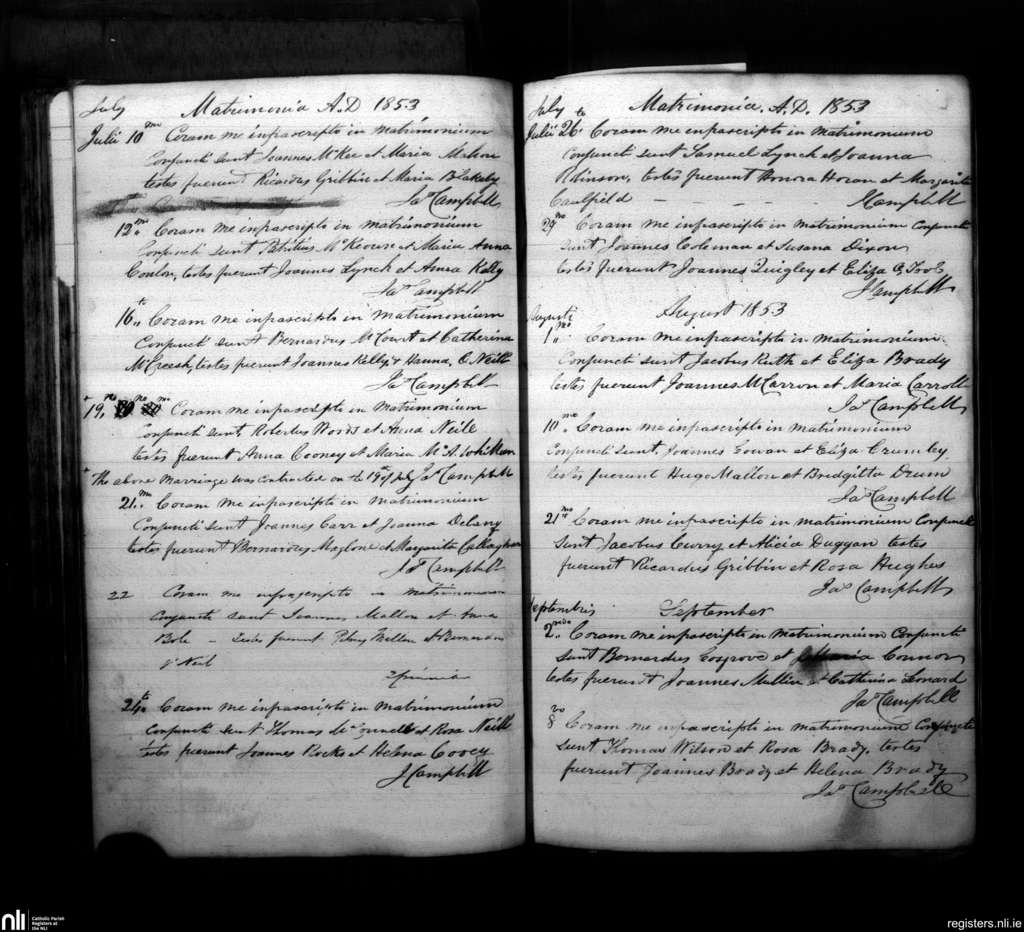 July Matrimonia A.D 1853
Julii 10mo Coram me infrascripto in Matrimonium
Conjuncti sunt Joannes McKee et Maria
testes fuerunt Ricardus Gribbin et Maria Blakely
Jas Campbell
12mo Coram me infrascripto in matrimonium
Conjuncti sunt Patritius McKeown et Maria Anna
Conlon, testes fuerunt Joannes Lynch et Anna Kelly
Jas Campbell
16to Coram me infrascripto in Matrimonium
Conjuncti sunt Bernardus McCourt et Catherina
McCreesh, testes fuerunt Joannes Kelly & Hanna O Neill
Jas Campbell
+ 19no Coram me infrascripto in Matrimonium
Conjuncti sunt Robertus Woods et Anna Neill
testes fuerunt Anna Cooney et Maria
+ The above Marriage was Contracted on the 19th of July Jas Campbell
21mo Coram me infrascripto in matrimonium
Conjuncti sunt Joannes Carr et Joanna Delany
testes fuerunt Bernardus et Margarita Callaghan
Jas Campbell
22 Coram me infrascripto in Matrimonium
Conjuncti sunt Joannes Mallon et Anna
testes fuerunt
O'Neil
24to Coram me infrascripto in matrimonium
Conjuncti sunt Thomas et Rosa Neill
testes fuerunt Joannes Rocks et Helena
J Campbell
July Matrimonia. A.D. 1853
Julii 26to Coram me infrascripto in Matrimonium
Conjuncti sunt Samuel Lynch et Joanna
Robinson, testes fuerunt Honora Horan et Margarita
Caulfield - - - - J Campbell
29no Coram me infrascripto in matrimonium Conjuncti
sunt Joannes Coleman et Susana Dixon
testes fuerunt Joannes Quigley et Eliza O Tool
J Campbell
Augusti August 1853
1mo Coram me infrascripto in matrimonium
Conjuncti sunt Jacobus Ruth et Eliza Brady
testes fuerunt Joannes McCarron et Maria Carroll
Jas Campbell
10mo Coram me infrascripto in matrimonium
Conjuncti sunt, Joannes Cowan et Eliza Crumley
testes fuerunt Hugo Mallon et Bridgitta Drum
Jas Campbell
21mo Coram me infrascripto in matrimonium Conjuncti
sunt Jacobus Curry et Alicia Duggan testes
fuerunt Ricardus Gribbin et Rosa Hughes
Jas Campbell
Septembris September
2ndo Coram me infrascripto in Matrimonium Conjuncti
sunt Bernardus Cosgrove et Maria Connor
testes fuerunt Joannes Mullin et Catherina Leonard
Jas Campbell
8vo Coram me infrascripto in matrimonium Conjuncti
sunt Thomas Wilson et Rosa Brady, testes
fuerunt Joannes Brady et Helena Brady
Jas Campbell
nli
Catholic Parish
Registers at
the NLI
registers.nli.ie